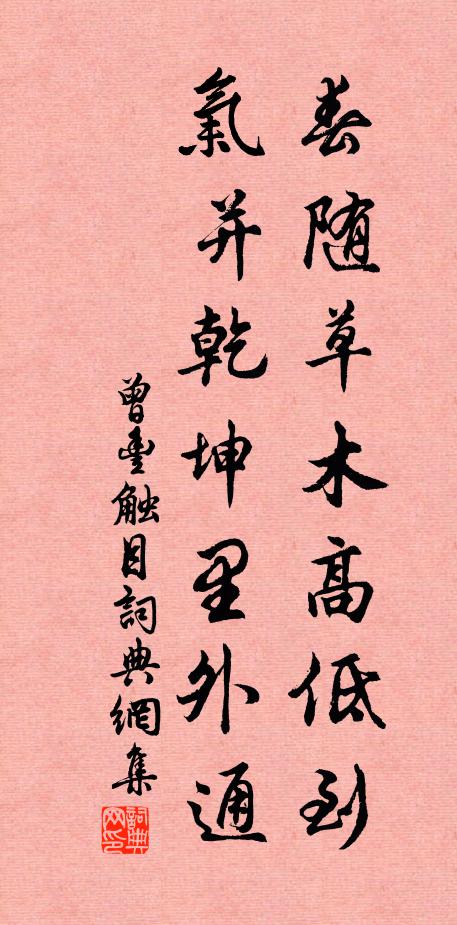 春随草木高低到
氣并乾坤里外通
曾豊触目詞典網集
詞典网印